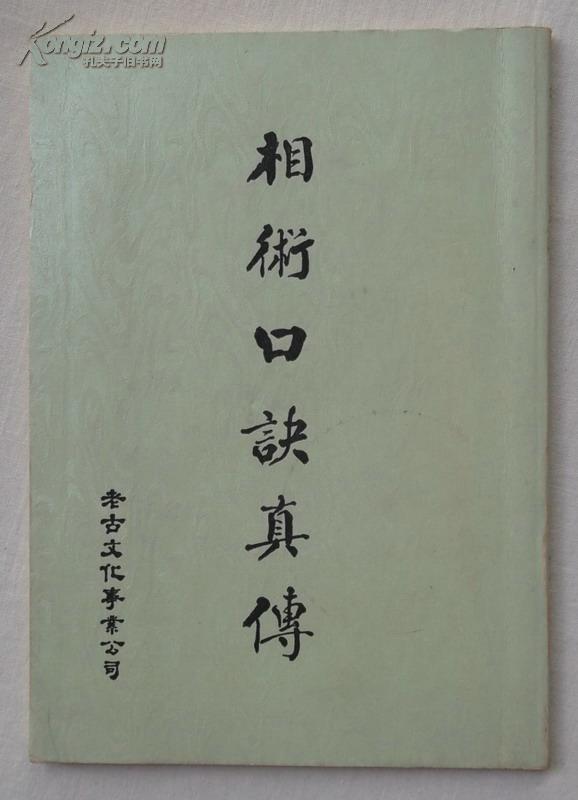 Kongfz.com
孔夫子旧书网
相術口訣真傳
老古文化事業公司